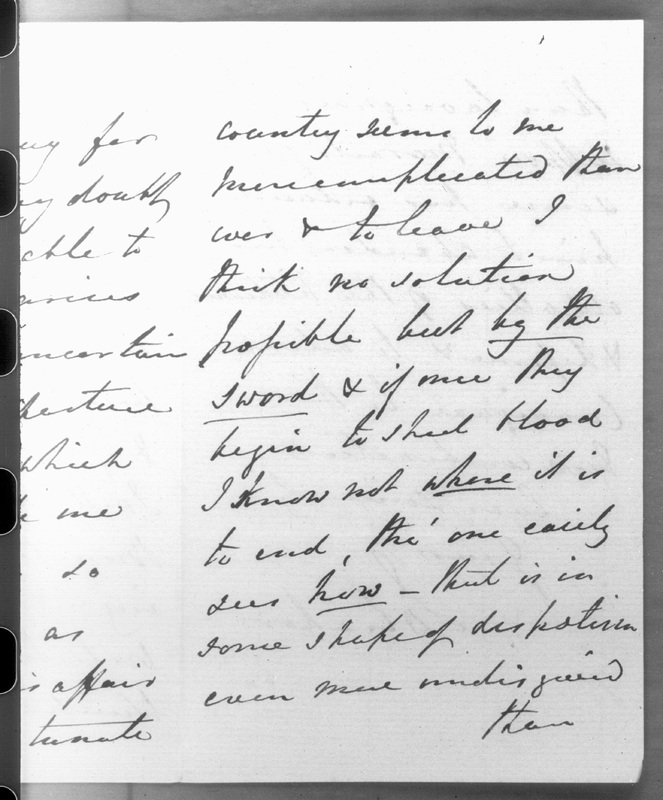 ay for
y doubt
able to
uncertain
which
me
so
as
is affair
tunate
country seems to me
more complicated than
ever & to leave I
think no solution
possible but by the
sword & if once they
begin to shed blood
I know not where it is
to end, tho' one easily
sees how – that is in
some shape of despotism
even more undisguised
than